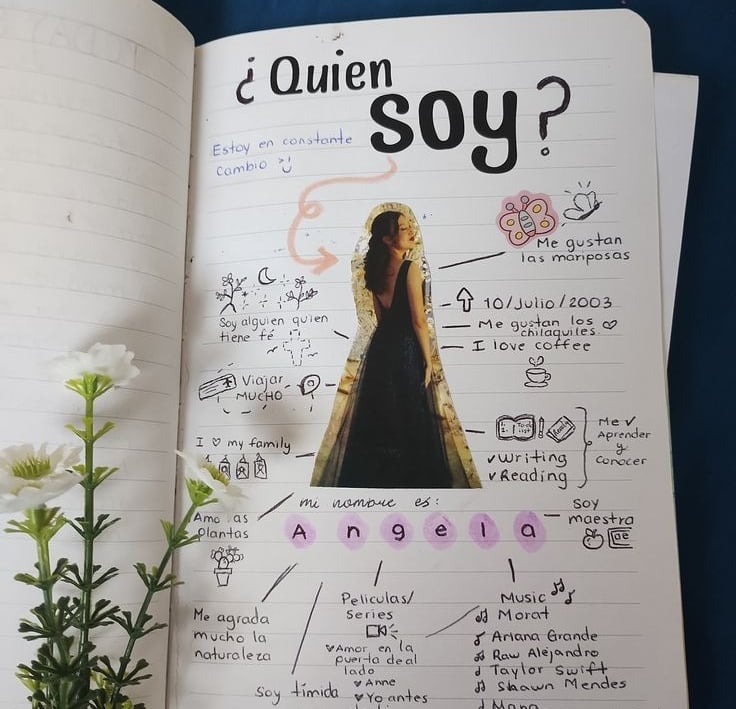 ¿Quien
soy?
Estoy en constante
cambio
Me gustan
las mariposas
10/Julio/2003
Me gustan los
chilaquiles
I love coffee
Soy alguien quien
tiene fé
Viajar
MUCHO
I ♡ my family
Me ✓
Aprender
y
Conocer
✓ Writing
✓ Reading
mi nombre es:
Angela
Soy
maestra
Amo las
plantas
Me agrada
mucho la
naturaleza
soy tímida
Peliculas/
Series
♥Amor en la
puerta de al
lado
♥Anne
♥Yo antes
Music
Morat
Ariana Grande
Raw Alejandro
Taylor Swift
Shawn Mendes